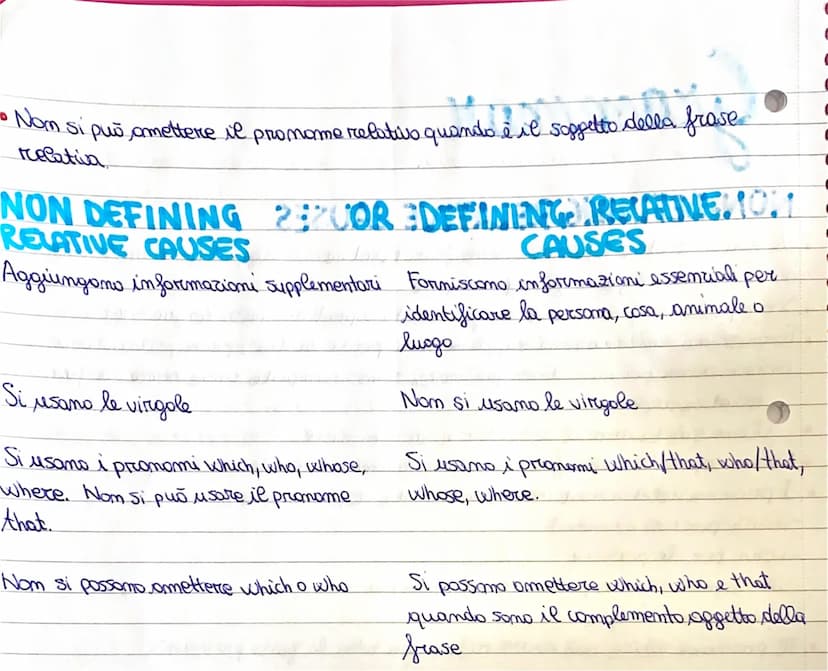 • Non si può omettere il pronome relativo quando è il soggetto della frase
relativa
NON DEFINING OR DEFINING RELATIVE
RELATIVE CAUSES CAUSES
Aggiungono informazioni supplementari Forniscono informazioni essenziali per
identificare la persona, cosa, animale o
luogo
Si usano le virgole Non si usano le virgole
Si usano i pronomi which, who, whose, Si usano i pronomi which/that, who/that,
where. Non si può usare il pronome whose, where.
that.
Non si possono omettere which o who Si possono omettere which, who e that
quando sono il complemento oggetto della
frase